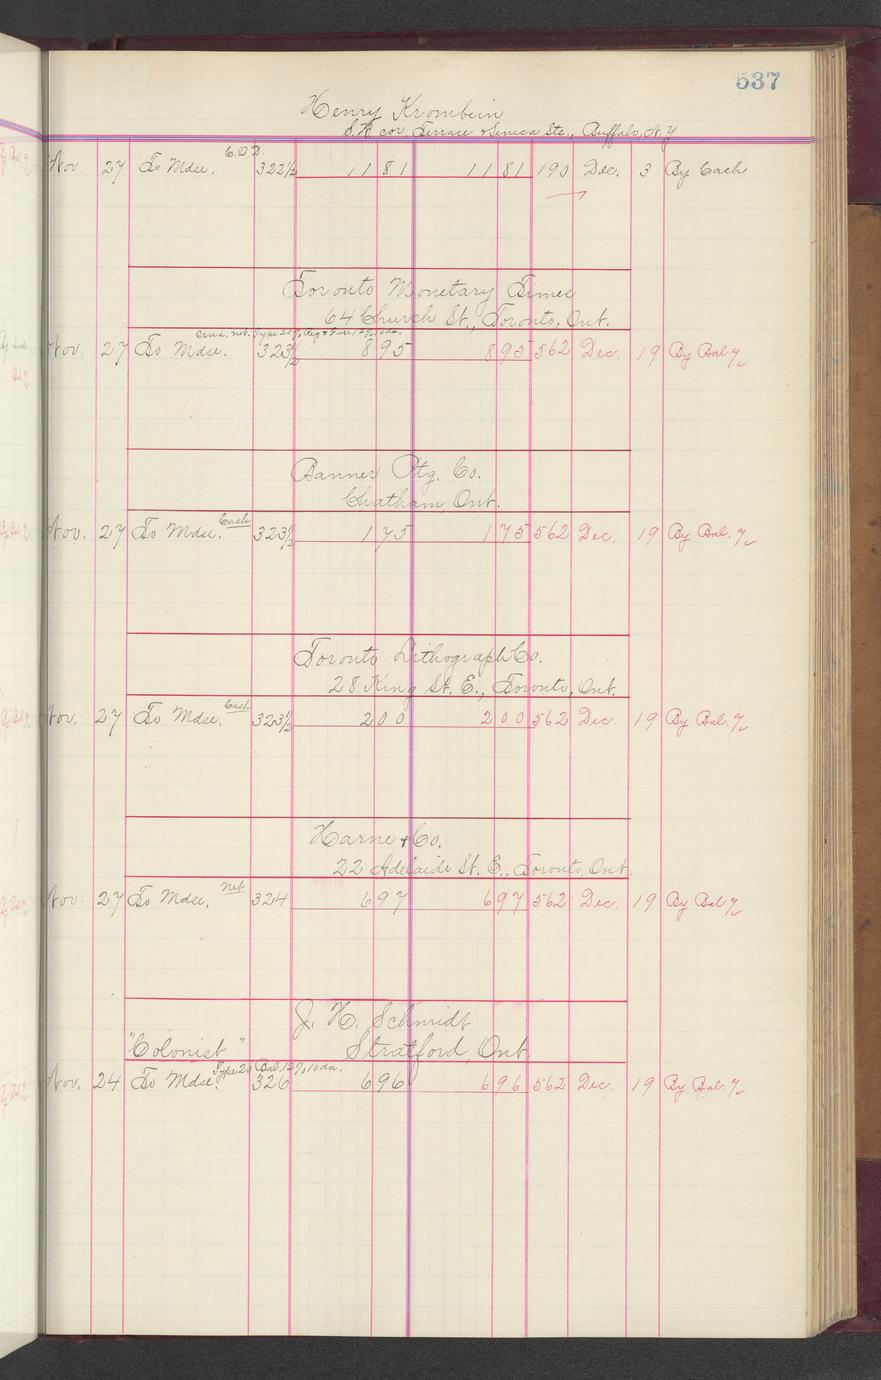 537
Henry Krombein
S.W cor, Terrace & Seneca Sts., Buffalo, N.Y
C.O.D.
Nov 27 To Mdse. 322½ 11 81 11 81 190 Dec. 3 By Cash
Toronto Monetary Times
64 Church St., Toronto, Ont.
net. Type 20%
Nov. 27 To Mdse. 323½ 8 95 8 95 562 Dec. 19 By Bal
Banner Ptg. Co.
Chatham Ont.
Cash
Nov. 27 To Mdse. 323½ 1 75 1 75 562 Dec. 19 By Bal.
Toronto Lithograph Co.
28 King St. E., Toronto, Ont.
Cash
Nov. 27 To Mdse. 323½ 2 00 2 00 562 Dec 19 By Bal.
Harne & Co.
22 Adelaide St. E., Toronto, Ont.
net
Nov. 27 To Mdse. 324 6 97 6 97 562 Dec. 19 By Bal
J. H. Schmidt
"Colonist" Stratford, Ont.
Type 20 Bal. 12% 10 da.
Nov. 24 To Mdse. 326 6 96 6 96 562 Dec. 19 By Bal.